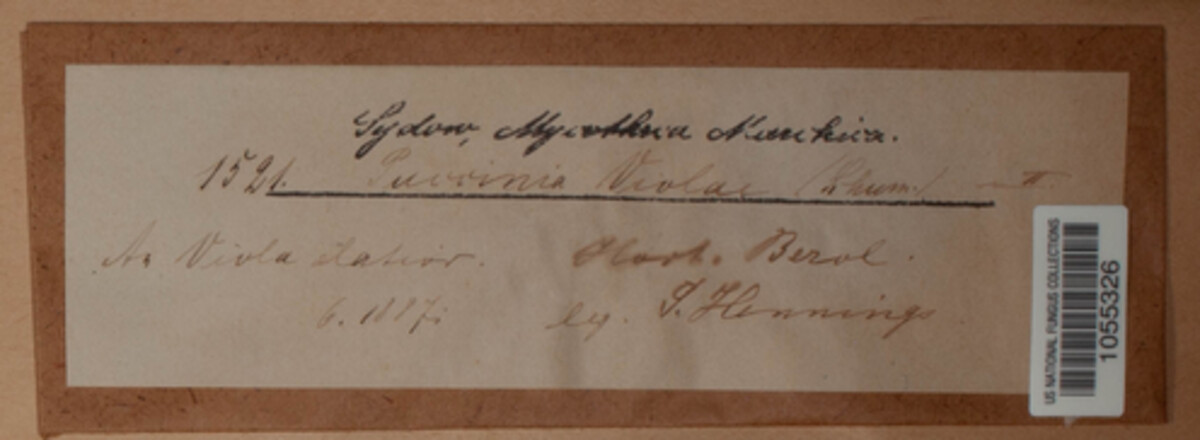 Sydow, Mycotheca Marchica.
1521. Puccinia Violae (Schum.) II.
An Viola elatior. Hort. Berol.
6. 1887. leg. P. Hennings
US NATIONAL FUNGUS COLLECTIONS
1055326